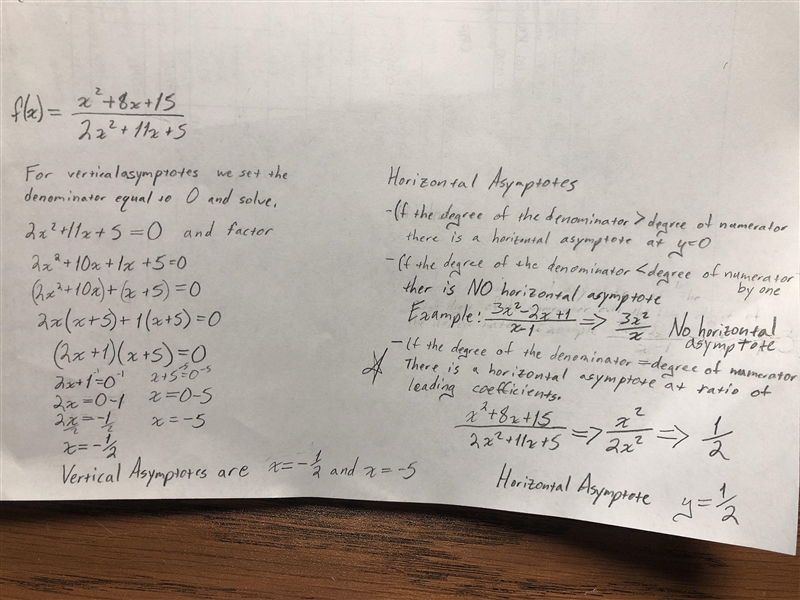 f(x) = x²+8x+15 / 2x²+11x+5
For vertical asymptotes we set the
denominator equal to 0 and solve.
2x²+11x+5=0 and factor
2x²+10x+1x+5=0
(2x²+10x)+(x+5)=0
2x(x+5)+1(x+5)=0
(2x+1)(x+5)=0
2x+1⁻¹=0⁻¹ x+5⁻⁵=0⁻⁵
2x=0-1 x=0-5
2x/2=-1/2 x=-5
x=-1/2
Vertical Asymptotes are x=-1/2 and x=-5
Horizontal Asymptotes
-(f the degree of the denominator > degree of numerator
there is a horizontal asymptote at y=0
-(f the degree of the denominator < degree of numerator
by one
ther is NO horizontal asymptote
Example: 3x²-2x+1 / x-1 => 3x²/x No horizontal
asymptote
-(f the degree of the denominator = degree of numerator
There is a horizontal asymptote at ratio of
leading coefficients.
x²+8x+15 / 2x²+11x+5 => x²/2x² => 1/2
Horizontal Asymptote y=1/2